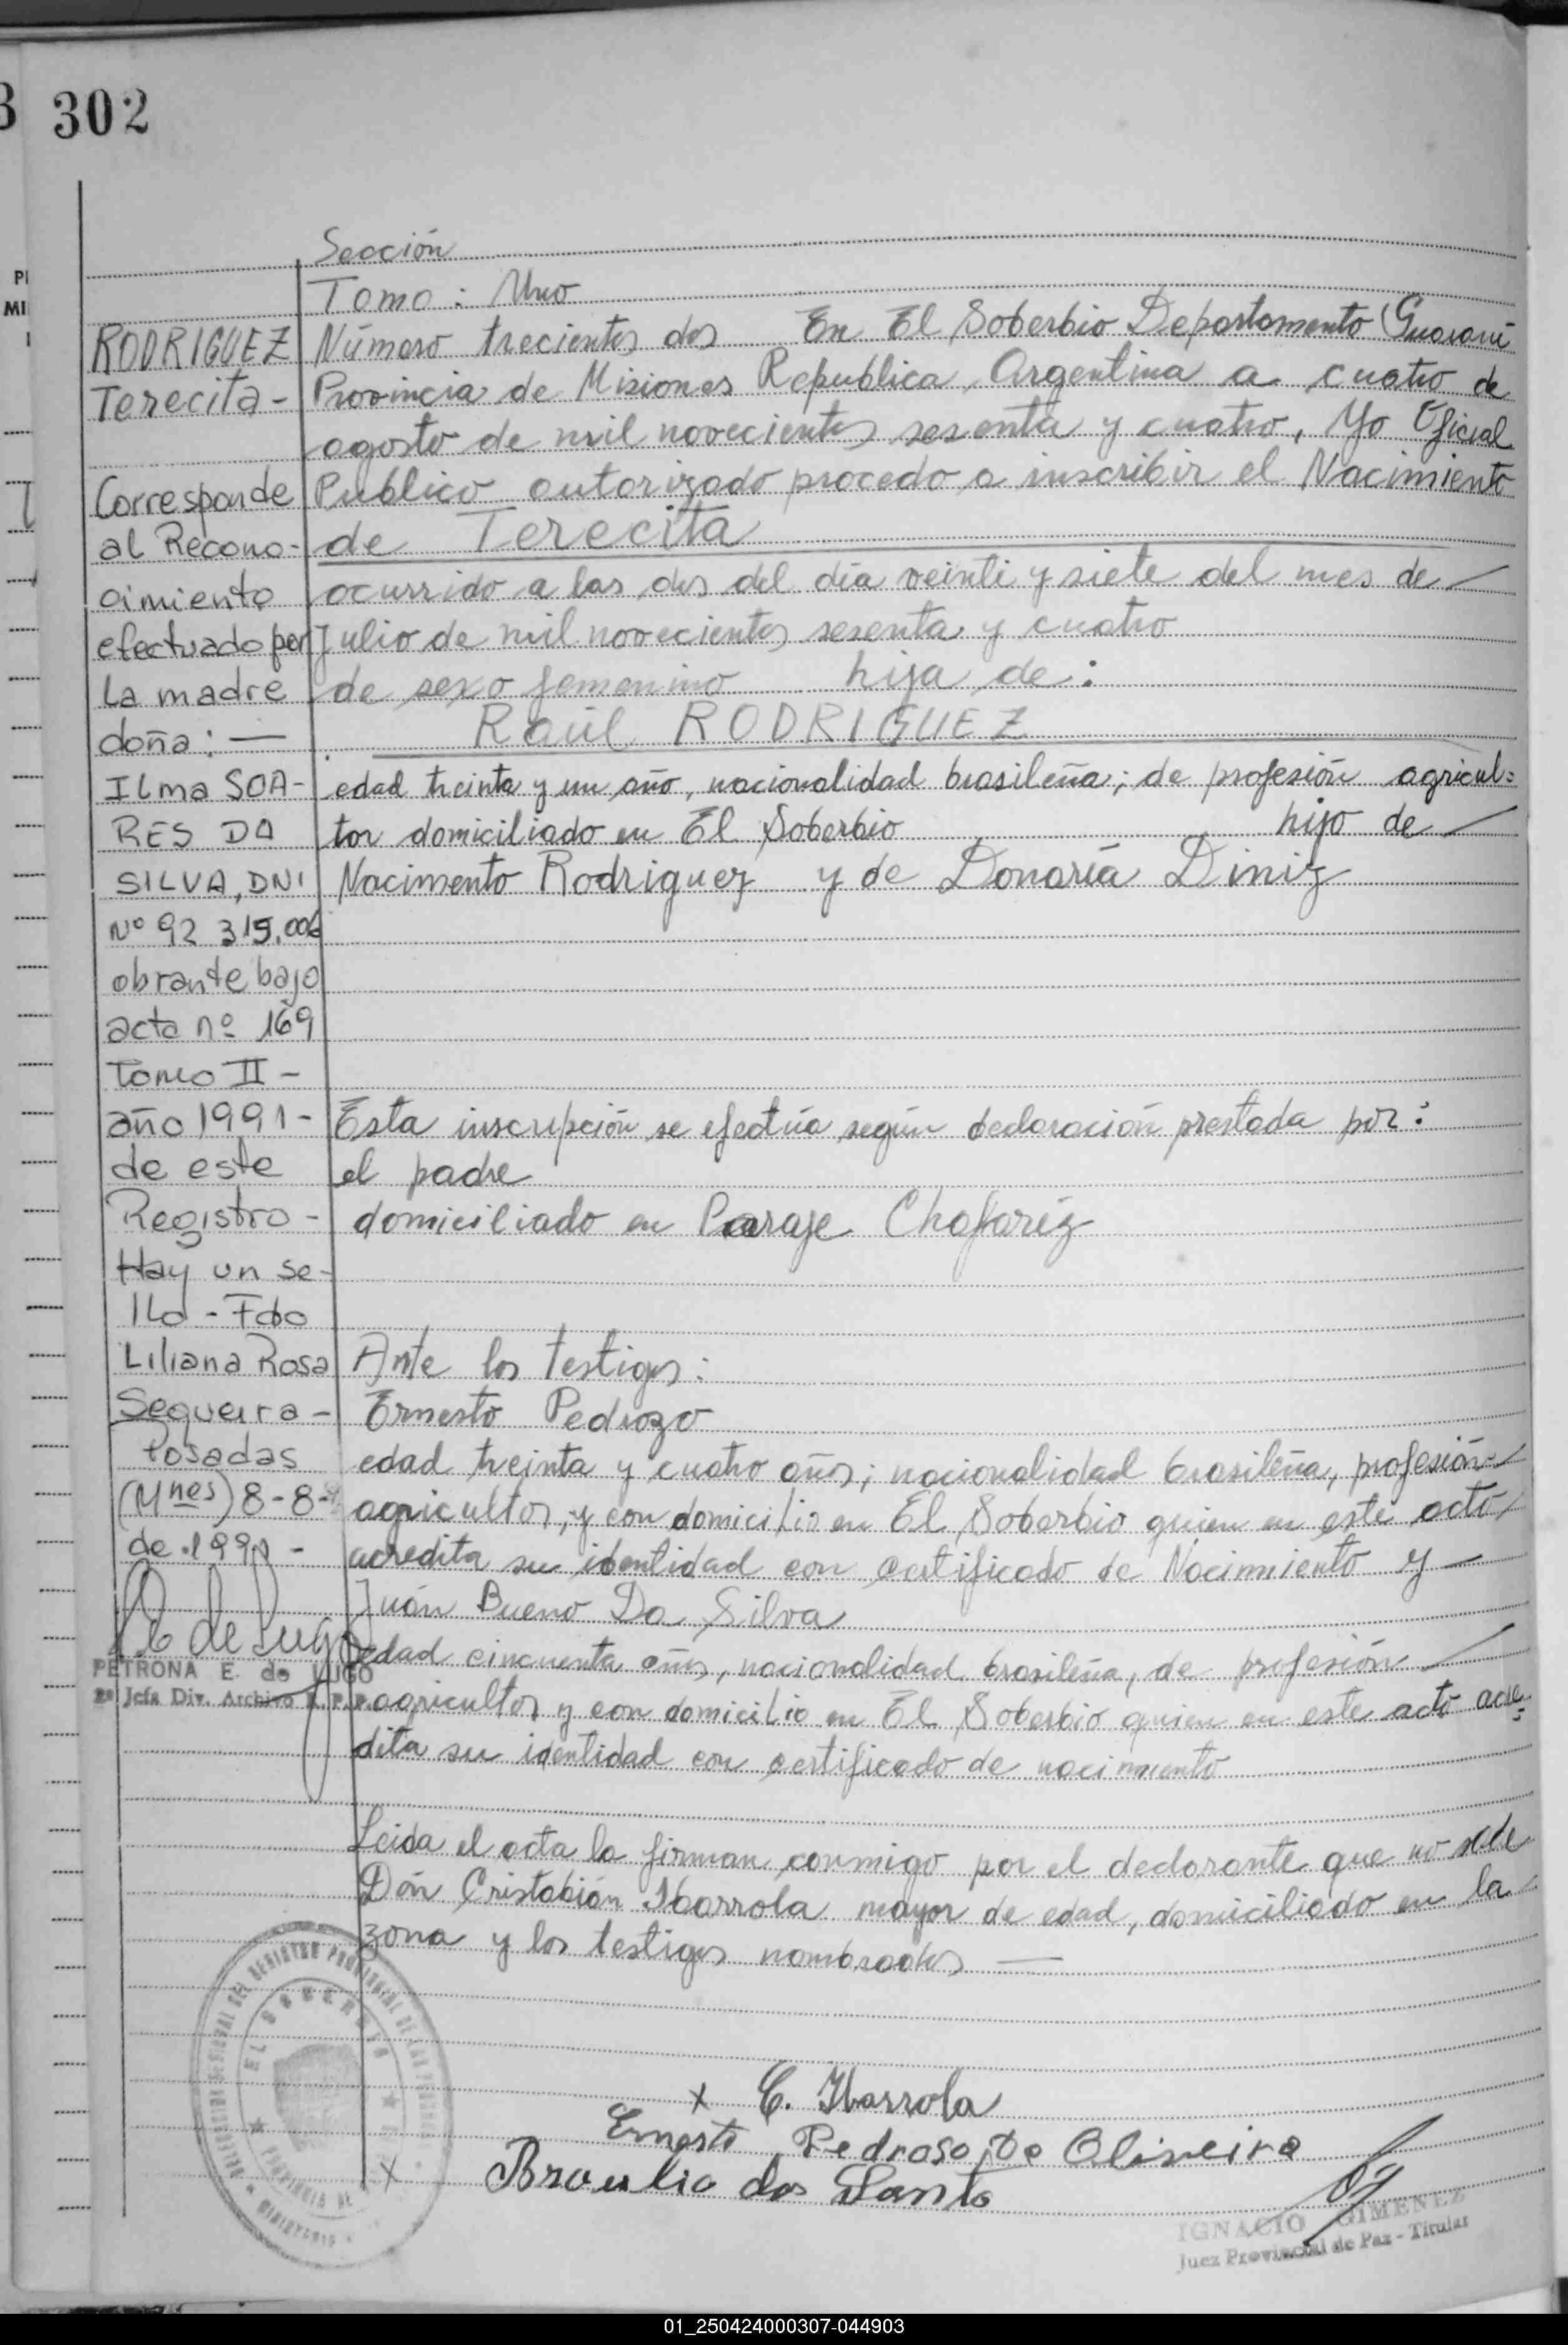 302
Sección
Tomo: Uno
Número trecientos dos En El Soberbio Departamento Guaraní
Provincia de Misiones Republica Argentina a cuatro de
agosto de mil novecientos sesenta y cuatro, Yo Oficial
Publico autorizado procedo a inscribir el Nacimiento
de Terecita
ocurrido a las dos del día veinti y siete del mes de
Julio de mil novecientos sesenta y cuatro
de sexo femenino hija de:
Raúl RODRIGUEZ
edad treinta y un año, nacionalidad brasileña; de profesión agricul=
tor domiciliado en El Soberbio hijo de
Nacimento Rodriguez y de Donaría Diniz
Esta inscripción se efectúa según declaración prestada por:
el padre
domiciliado en Paraje Chafaríz
Ante los testigos:
Ernesto Pedrozo
edad treinta y cuatro años; nacionalidad brasileña, profesión
agricultor, y con domicilio en El Soberbio quien en este acto
acredita su identidad con certificado de Nacimiento y
Juán Bueno Da Silva
edad cincuenta años, nacionalidad brasileña, de profesión
agricultor y con domicilio en El Soberbio quien en este acto acre=
dita su identidad con certificado de nacimiento
Leida el acta la firman conmigo por el declarante que no sabe
Dón Cristobián Ibarrola mayor de edad, domiciliado en la
zona y los testigos nombrados
RODRIGUEZ
Terecita-
Corresponde
al Recono-
cimiento
efectuado por
La madre
doña: —
Ilma SOA-
RES DA
SILVA, DNI
Nº 92 315.006
obrante bajo
acta nº 169
Tomo II -
año 1991-
de este
Registro -
Hay un se-
llo - Fdo
Liliana Rosa
Sequeira -
Posadas
(Mnes) 8-8-
de 1991 -
PETRONA E. de LUGO
2ª Jefa Div. Archivo R. P. P.
EL SOBERBIO
x C. Ibarrola
Ernesto Pedroso De Oliveira
x Braulio dos Santo
IGNACIO GIMENEZ
Juez Provincial de Paz - Titular
01_250424000307-044903